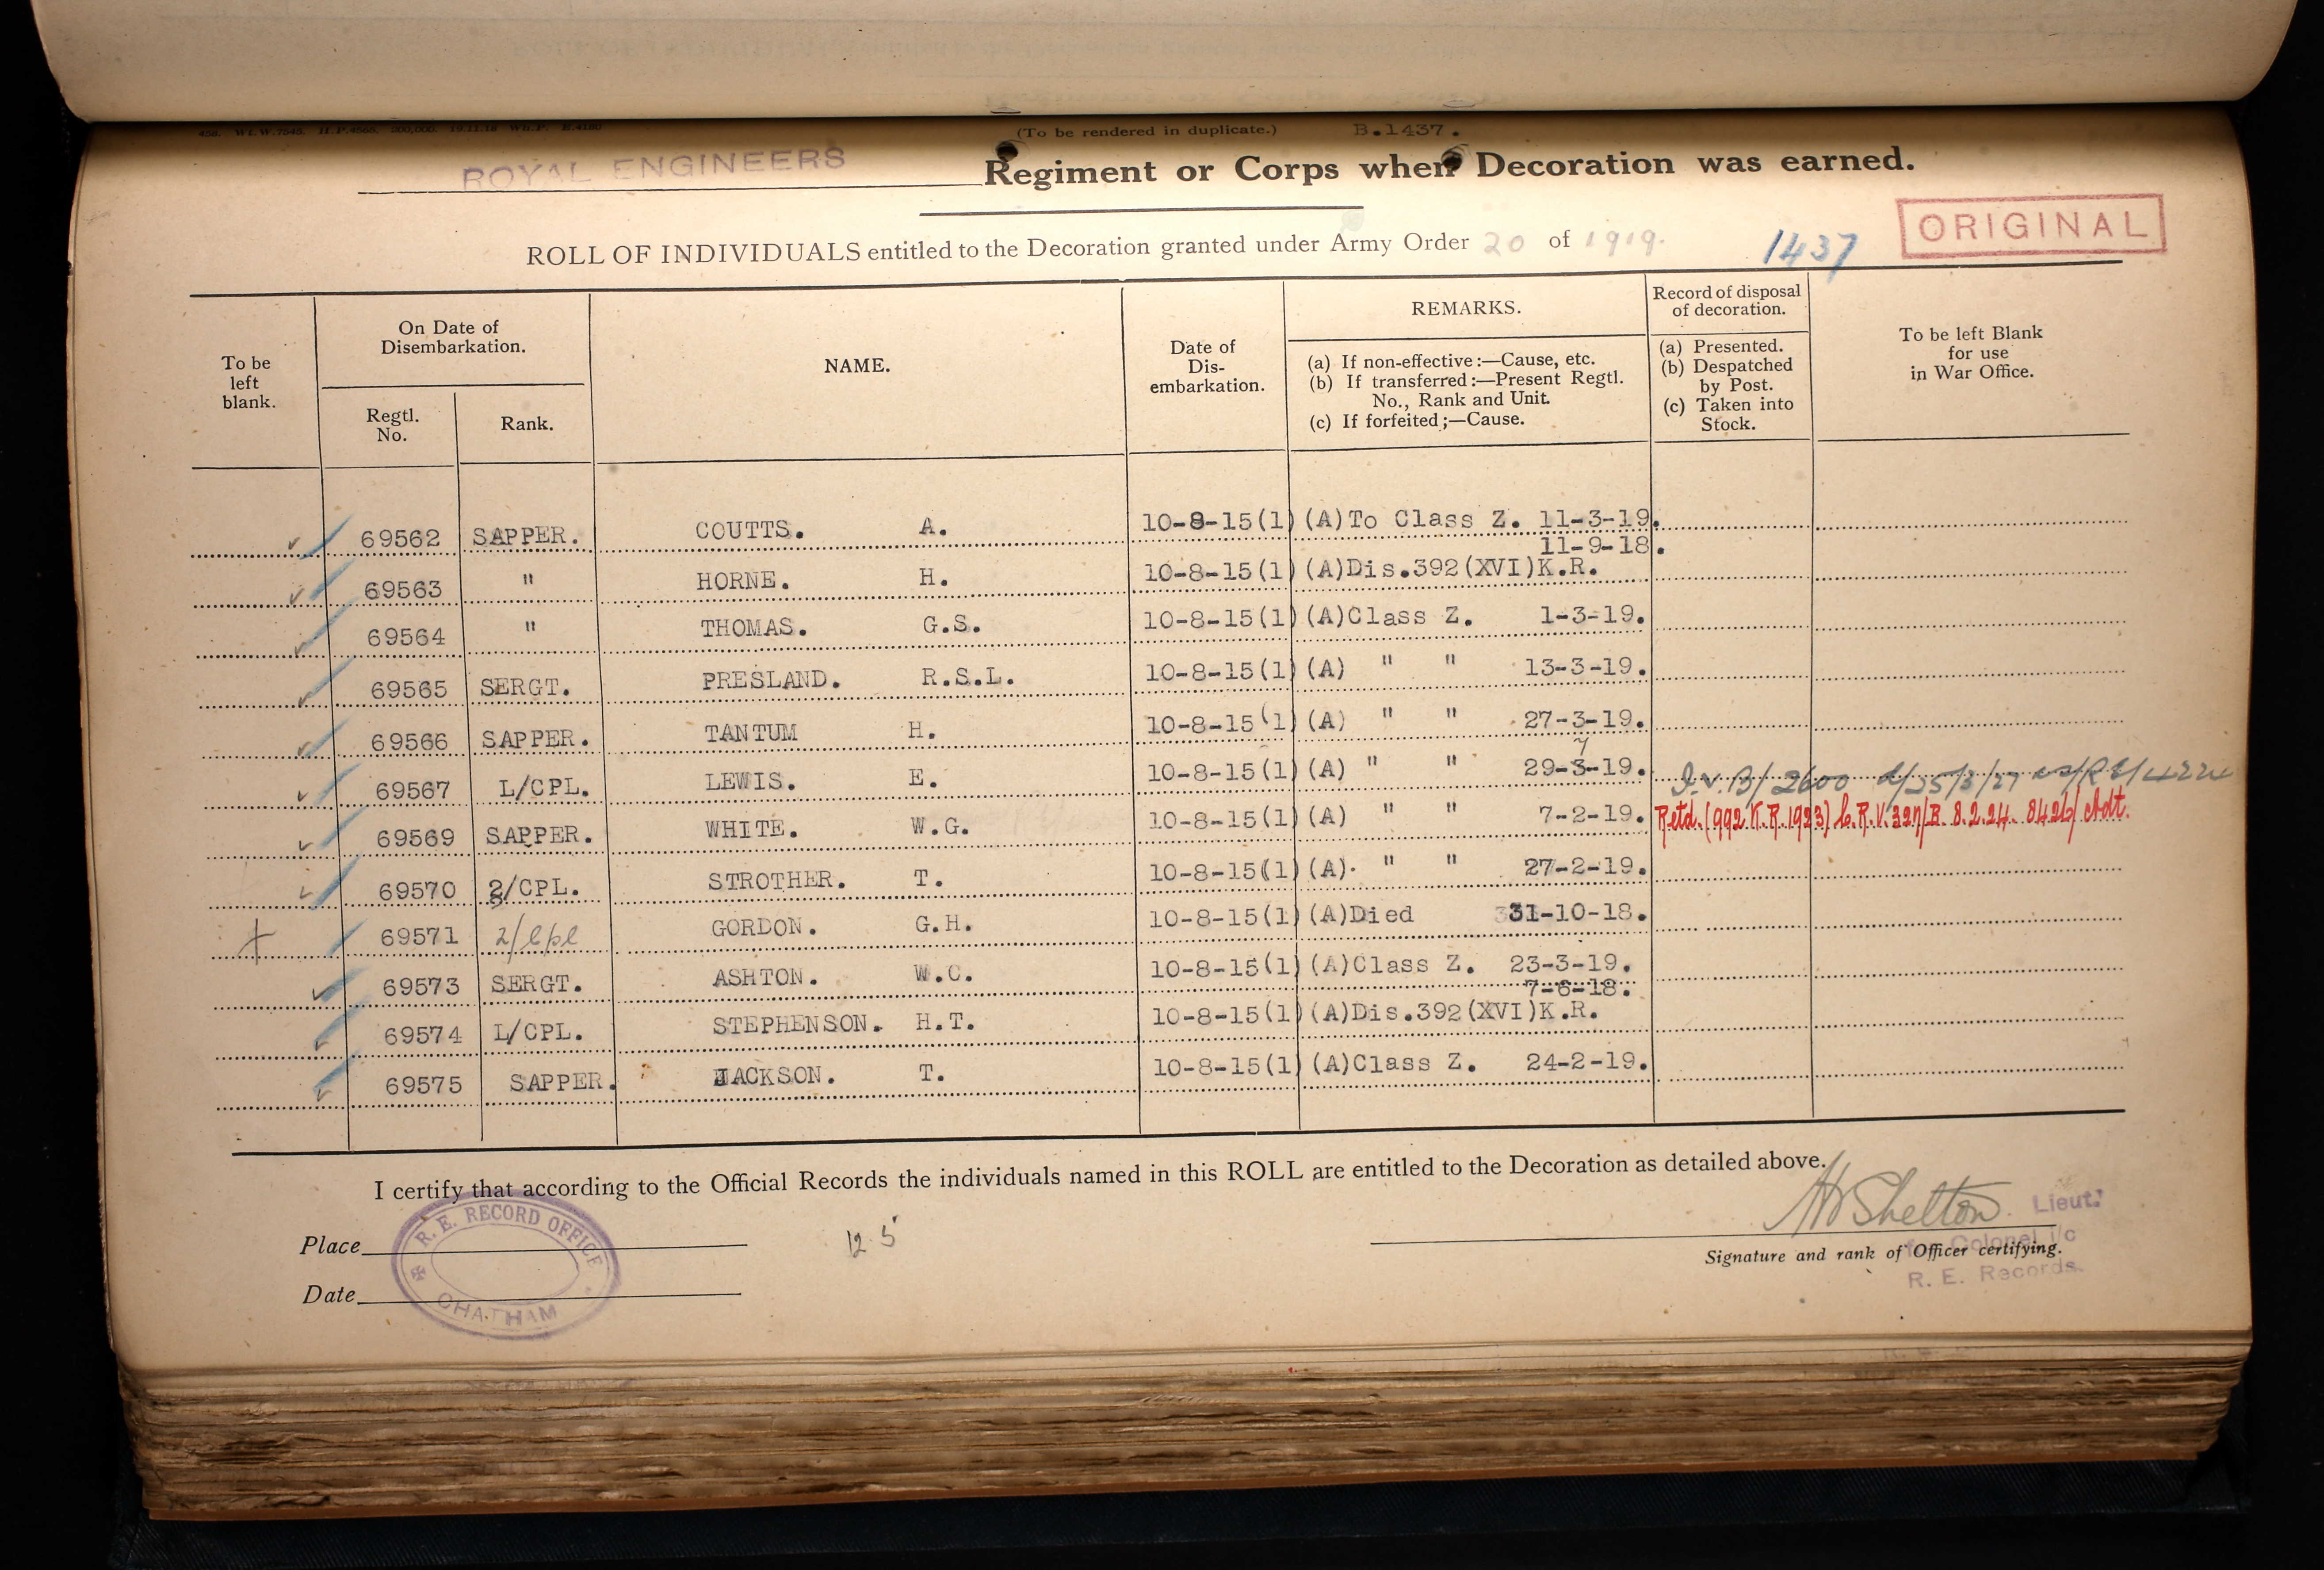 458. Wt.W.7545. H.P.4565. 200,000. 19.11.18 Wh.P. E.4180
(To be rendered in duplicate.) B.1437.
ROYAL ENGINEERS Regiment or Corps when Decoration was earned.
ORIGINAL
ROLL OF INDIVIDUALS entitled to the Decoration granted under Army Order 20 of 1919. 1437
To be left blank.
On Date of Disembarkation.
Regtl. No.
Rank.
NAME.
Date of Dis-embarkation.
REMARKS.
(a) If non-effective:—Cause, etc.
(b) If transferred:—Present Regtl. No., Rank and Unit.
(c) If forfeited;—Cause.
Record of disposal of decoration.
(a) Presented.
(b) Despatched by Post.
(c) Taken into Stock.
To be left Blank for use in War Office.
69562 SAPPER. COUTTS. A. 10-8-15(1) (A)To Class Z. 11-3-19.
11-9-18.
69563 " HORNE. H. 10-8-15(1) (A)Dis.392(XVI)K.R.
69564 " THOMAS. G.S. 10-8-15(1) (A)Class Z. 1-3-19.
69565 SERGT. PRESLAND. R.S.L. 10-8-15(1) (A) " " 13-3-19.
69566 SAPPER. TANTUM H. 10-8-15(1) (A) " " 27-3-19.
69567 L/CPL. LEWIS. E. 10-8-15(1) (A) " " 29-3-19. I.V.B/2600 d/25/3/27
69569 SAPPER. WHITE. W.G. 10-8-15(1) (A) " " 7-2-19. Retd. (992 K.R. 1923) C.R.V. 327/B 8.2.24. 8426/Adt.
69570 2/CPL. STROTHER. T. 10-8-15(1) (A). " " 27-2-19.
69571 2/Cpl GORDON. G.H. 10-8-15(1) (A)Died 31-10-18.
69573 SERGT. ASHTON. W.C. 10-8-15(1) (A)Class Z. 23-3-19.
7-6-18.
69574 L/CPL. STEPHENSON. H.T. 10-8-15(1) (A)Dis.392(XVI)K.R.
69575 SAPPER. JACKSON. T. 10-8-15(1) (A)Class Z. 24-2-19.
I certify that according to the Official Records the individuals named in this ROLL are entitled to the Decoration as detailed above.
Shelton Lieut.
for Colonel i/c
R. E. Records.
Place
R. E. RECORD OFFICE
CHATHAM
12 5
Signature and rank of Officer certifying.
Date